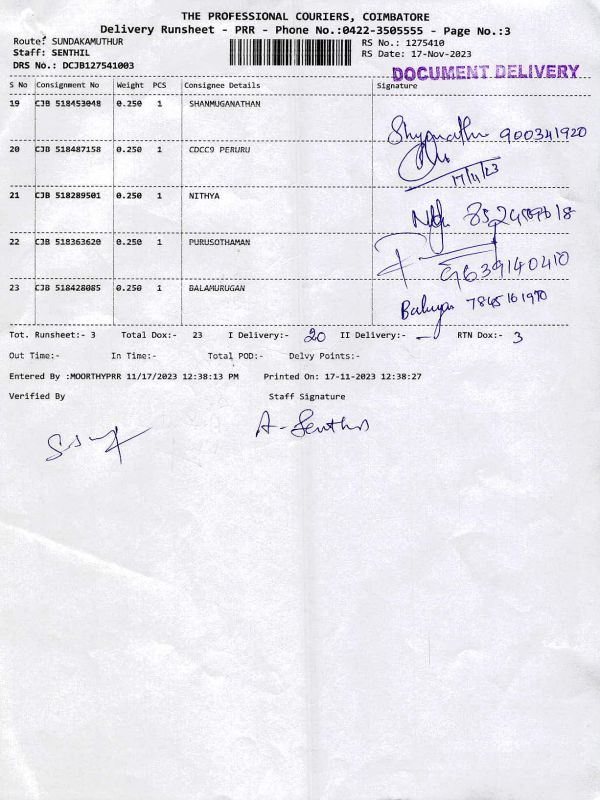 THE PROFESSIONAL COURIERS, COIMBATORE
Delivery Runsheet - PRR - Phone No.:0422-3505555 - Page No.:3
Route: SUNDAKAMUTHUR RS No.: 1275410
Staff: SENTHIL RS Date: 17-Nov-2023
DRS No.: DCJB127541003
DOCUMENT DELIVERY
S No Consignment No Weight PCS Consignee Details Signature
19 CJB 518453048 0.250 1 SHANMUGANATHAN
900341920
20 CJB 518487158 0.250 1 CDCC9 PERURU
17/11/23
21 CJB 518289501 0.250 1 NITHYA
22 CJB 518363620 0.250 1 PURUSOTHAMAN
9639140410
23 CJB 518428085 0.250 1 BALAMURUGAN
7845161970
Tot. Runsheet:- 3 Total Dox:- 23 I Delivery:- 20 II Delivery:- - RTN Dox:- 3
Out Time:- In Time:- Total POD:- Delvy Points:-
Entered By :MOORTHYPRR 11/17/2023 12:38:13 PM Printed On: 17-11-2023 12:38:27
Verified By Staff Signature
A-Senthil